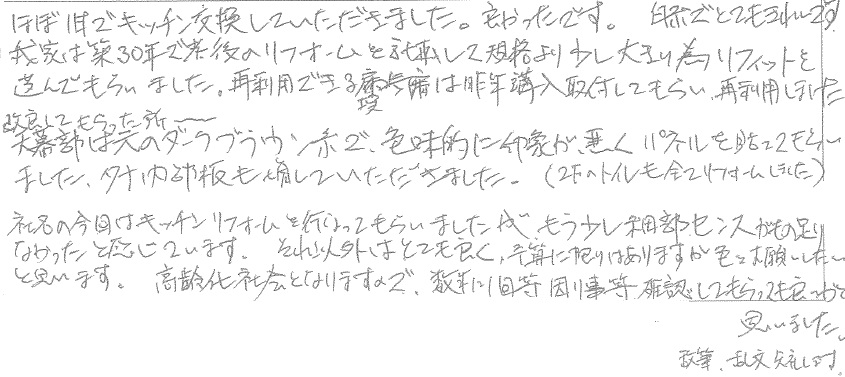 ほぼ1日でキッチン交換していただきました。良かったです。 白系でとてもきれいです
我家は築30年で老後のリフォームを計画して規格より少し大きい為リフィットを
選んでもらいました。再利用できる は昨年購入取付してもらい、再利用しました
改良してもらった所〜
天幕部は元のダークブラウン系で、色味的に印象が悪くパネルを貼ってもらい
ました、タナ内部板も増していただきました。(2Fのトイレも全てリフォームしました)
社名の今回はキッチンリフォームを行なってもらいましたが、もう少し細部センスがもの足り
なかったと感じています。それ以外はとても良く、予算に限りはありますが色々お願いしたい
と思います。高齢化社会となりますので、数年に1回等困り事等確認してもらっても良いかと
思いました。
乱筆、乱文失礼します。